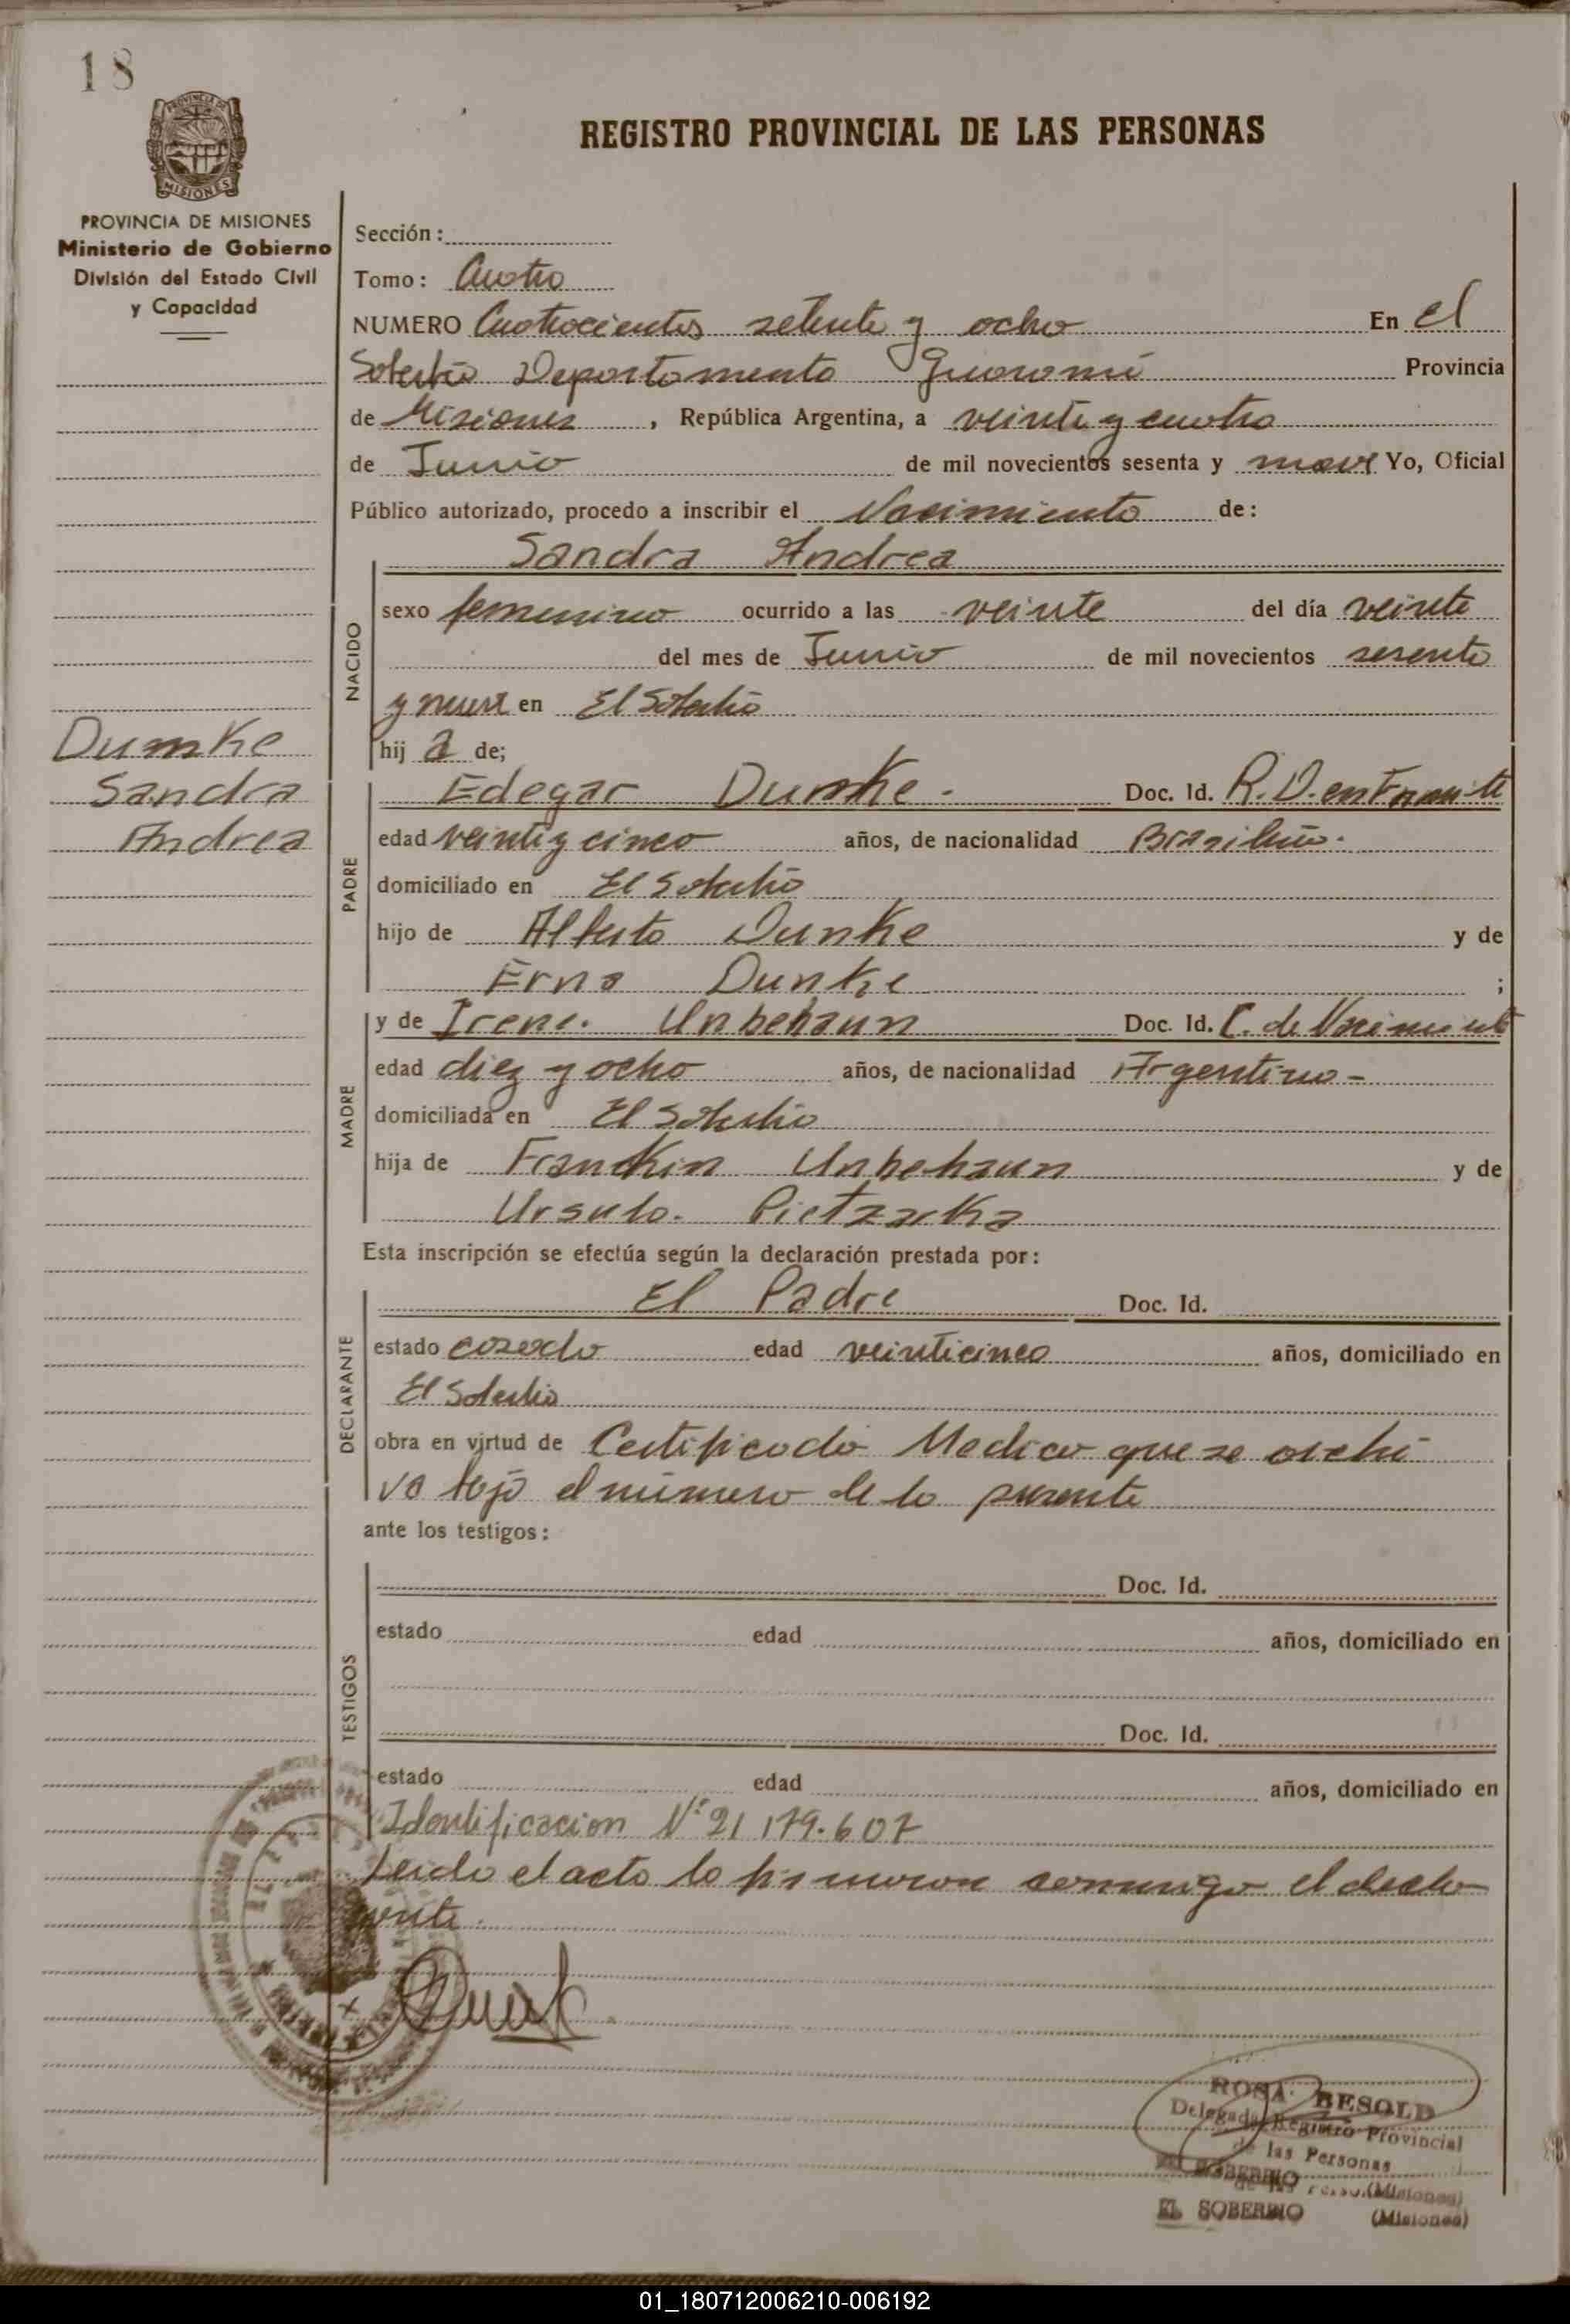 18
PROVINCIA DE
MISIONES
REGISTRO PROVINCIAL DE LAS PERSONAS
PROVINCIA DE MISIONES
Ministerio de Gobierno
División del Estado Civil
y Capacidad
Sección:
Tomo: Cuatro
NUMERO Cuatrocientos setenta y ocho En El
Soberbio Departamento Guaraní Provincia
de Misiones, República Argentina, a veinte y cuatro
de Junio de mil novecientos sesenta y nueve Yo, Oficial
Público autorizado, procedo a inscribir el Nacimiento de:
Sandra Andrea
NACIDO
sexo femenino ocurrido a las veinte del día veinte
del mes de Junio de mil novecientos sesenta
y nueve en El Soberbio
hij a de;
Dumke
Sandra
Andrea
PADRE
Edegar Dumke. Doc. Id. R.D. en Tramite
edad veinte y cinco años, de nacionalidad Brasileño.
domiciliado en El Soberbio
hijo de Alberto Dunke y de
Erna Dunke ;
MADRE
y de Irene. Unbehaun Doc. Id. C. de Nacimiento
edad diez y ocho años, de nacionalidad Argentina -
domiciliada en El Soberbio
hija de Franckin Unbehaun y de
Ursula. Pietzarka
Esta inscripción se efectúa según la declaración prestada por:
DECLARANTE
El Padre Doc. Id.
estado casado edad veinticinco años, domiciliado en
El Soberbio
obra en virtud de Certificado Medico que se archi
va bajo el número de la presente
ante los testigos:
TESTIGOS
Doc. Id.
estado edad años, domiciliado en
Doc. Id.
estado edad años, domiciliado en
Identificacion Nº 21 179.607
Leida el acta la firmaron conmigo el decla
rante.
ROSA BESOLD
Delegada Registro Provincial
de las Personas
EL SOBERBIO (Misiones)
EL SOBERBIO (Misiones)
01_180712006210-006192